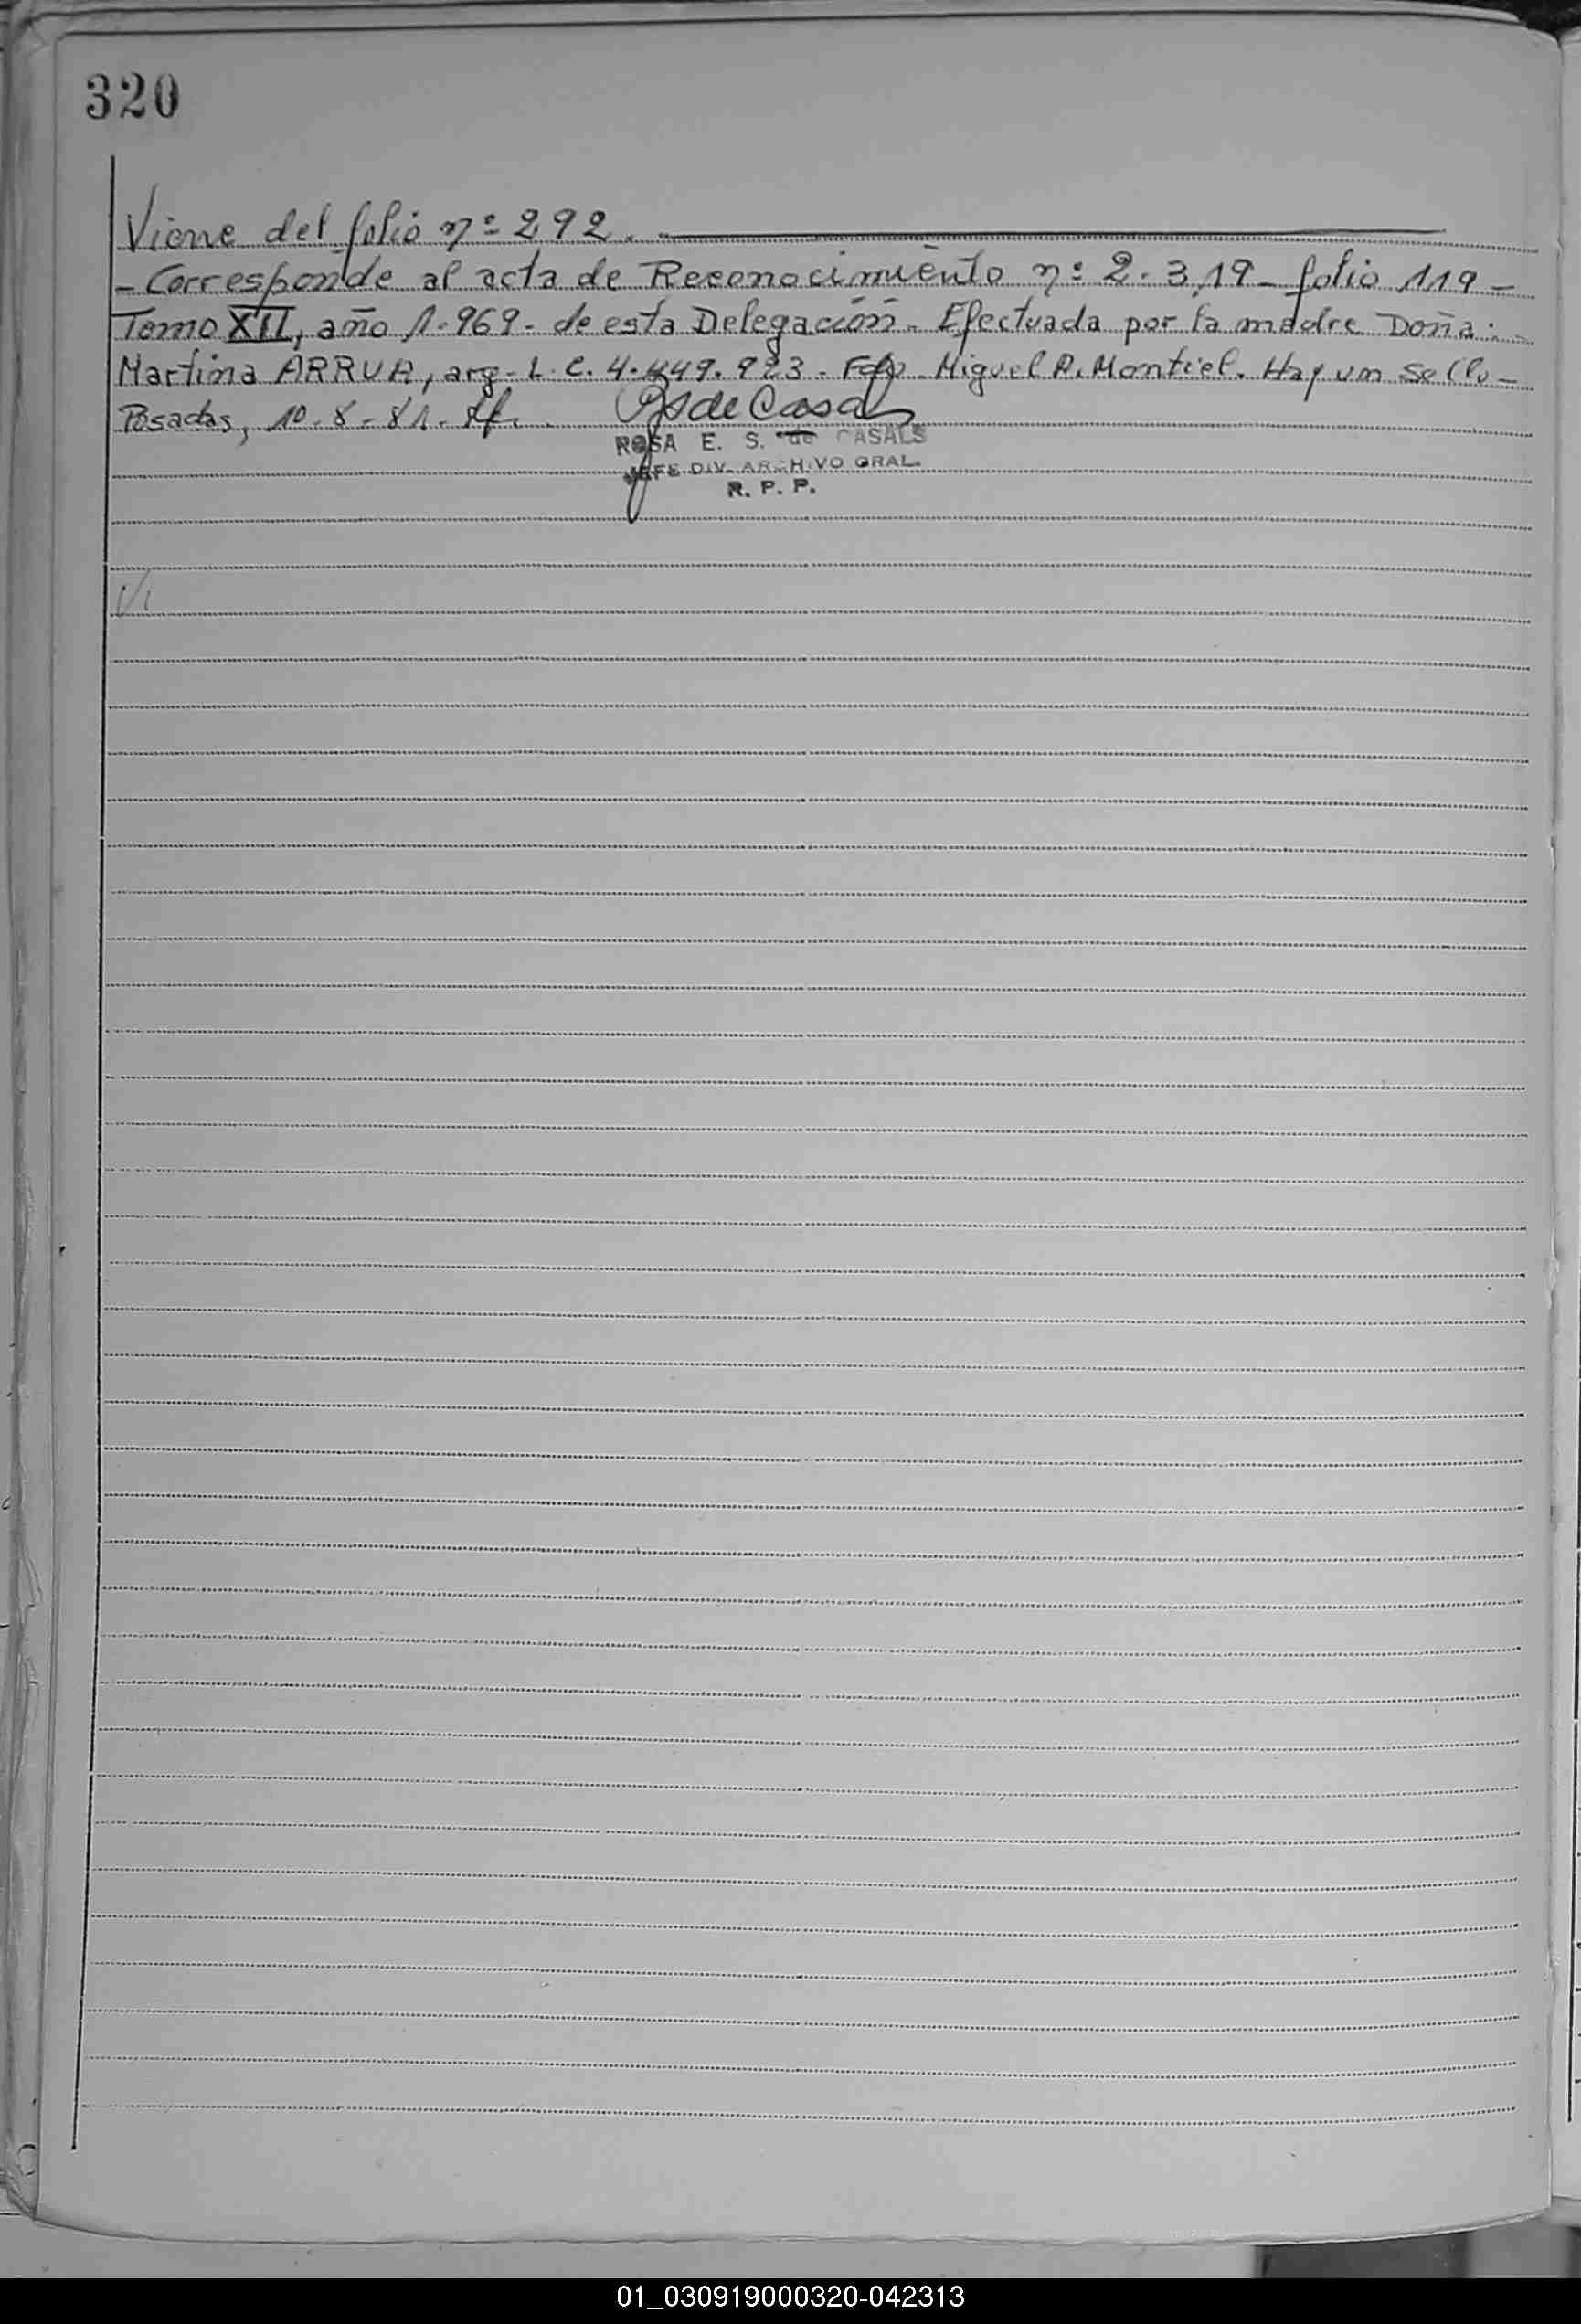 320
Viene del folio nº 292.
- Corresponde al acta de Reconocimiento nº 2.319 - folio 119 -
Tomo XII, año 1.969 - de esta Delegación - Efectuada por la madre Doña:
Martina ARRUA, arg - L.C. 4. 49.923 - Fdo - Miguel A. Montiel. Hay un sello -
Posadas, 10-8-81.
R S de Casals
ROSA E. S. de CASALS
JEFE DIV. ARCHIVO GRAL.
R. P. P.
01_030919000320-042313